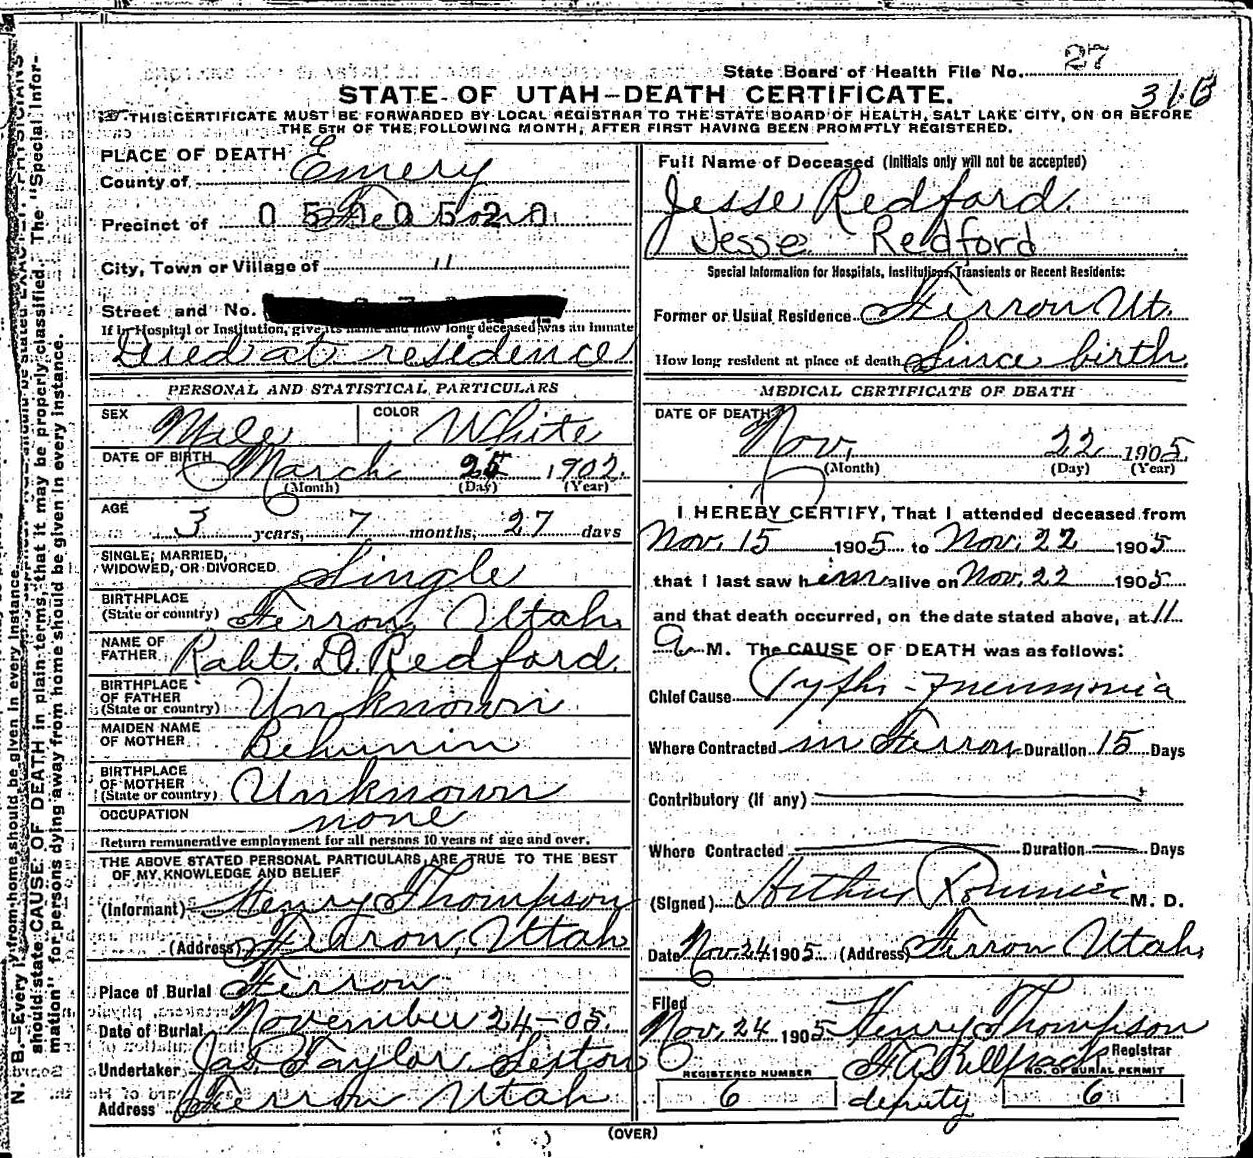 State Board of Health File No. 27
STATE OF UTAH—DEATH CERTIFICATE.
31B
THIS CERTIFICATE MUST BE FORWARDED BY LOCAL REGISTRAR TO THE STATE BOARD OF HEALTH, SALT LAKE CITY, ON OR BEFORE
THE 5TH OF THE FOLLOWING MONTH, AFTER FIRST HAVING BEEN PROMPTLY REGISTERED.
PLACE OF DEATH
County of Emery
Precinct of Ferron
City, Town or Village of "
Street and No.
If in Hospital or Institution, give its name and how long deceased was an inmate
Died at residence
PERSONAL AND STATISTICAL PARTICULARS
SEX Male COLOR White
DATE OF BIRTH March 25 1902.
(Month) (Day) (Year)
AGE 3 years, 7 months, 27 days
SINGLE, MARRIED,
WIDOWED, OR DIVORCED Single
BIRTHPLACE
(State or country) Ferron, Utah.
NAME OF
FATHER Robt. D. Redford.
BIRTHPLACE
OF FATHER
(State or country) Unknown
MAIDEN NAME
OF MOTHER Behunin
BIRTHPLACE
OF MOTHER
(State or country) Unknown
OCCUPATION none
Return remunerative employment for all persons 10 years of age and over.
THE ABOVE STATED PERSONAL PARTICULARS ARE TRUE TO THE BEST
OF MY KNOWLEDGE AND BELIEF
(Informant) Henry Thompson
(Address) Ferron, Utah
Place of Burial Ferron
Date of Burial November 24-05.
Undertaker Jas. Taylor, Sexton
Address Ferron Utah
Full Name of Deceased (Initials only will not be accepted)
Jesse Redford.
Jesse Redford
Special Information for Hospitals, Institutions, Transients or Recent Residents:
Former or Usual Residence Ferron Ut.
How long resident at place of death Since birth
MEDICAL CERTIFICATE OF DEATH
DATE OF DEATH
Nov. 22 1905
(Month) (Day) (Year)
I HEREBY CERTIFY, That I attended deceased from
Nov. 15 1905 to Nov. 22 1905
that I last saw him alive on Nov. 22 1905
and that death occurred, on the date stated above, at 11
A M. The CAUSE OF DEATH was as follows:
Chief Cause Typho-Pneumonia
Where Contracted in Ferron Duration 15 Days
Contributory (If any)
Where Contracted Duration Days
(Signed) Arthur M. D.
Date Nov. 24 1905 (Address) Ferron Utah,
Filed
Nov. 24 1905 Henry Thompson
Registrar
REGISTERED NUMBER NO. OF BURIAL PERMIT
6 deputy 6
(OVER)
N. B.—Every
should state CAUSE OF DEATH in plain terms, that it may be properly classified. The "Special Infor-
mation" for persons dying away from home should be given in every instance.